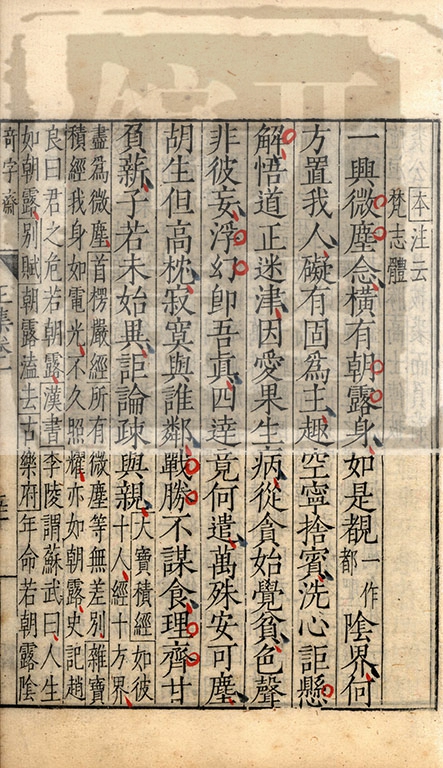 本注云
梵志體
一興微塵念橫有朝露身如是覩一作都陰界何
方置我人礙有固為主趣空寧捨賓洗心詎懸
解悟道正迷津因愛果生病從貪始覺貧色聲
非彼妄浮幻即吾真四達竟何遣萬殊安可塵
胡生但高枕寂寞與誰鄰戰勝不謀食理齊甘
負薪子若未始異詎論疎與親大寶積經如彼十人經十方界
盡為微塵首楞嚴經所有微塵等無差別雜寶
積經我身如電光不久照耀亦如朝露史記趙
良曰君之危若朝露漢書李陵謂蘇武曰人生
如朝露別賦朝露溘去古樂府年命若朝露陰
奇字齋